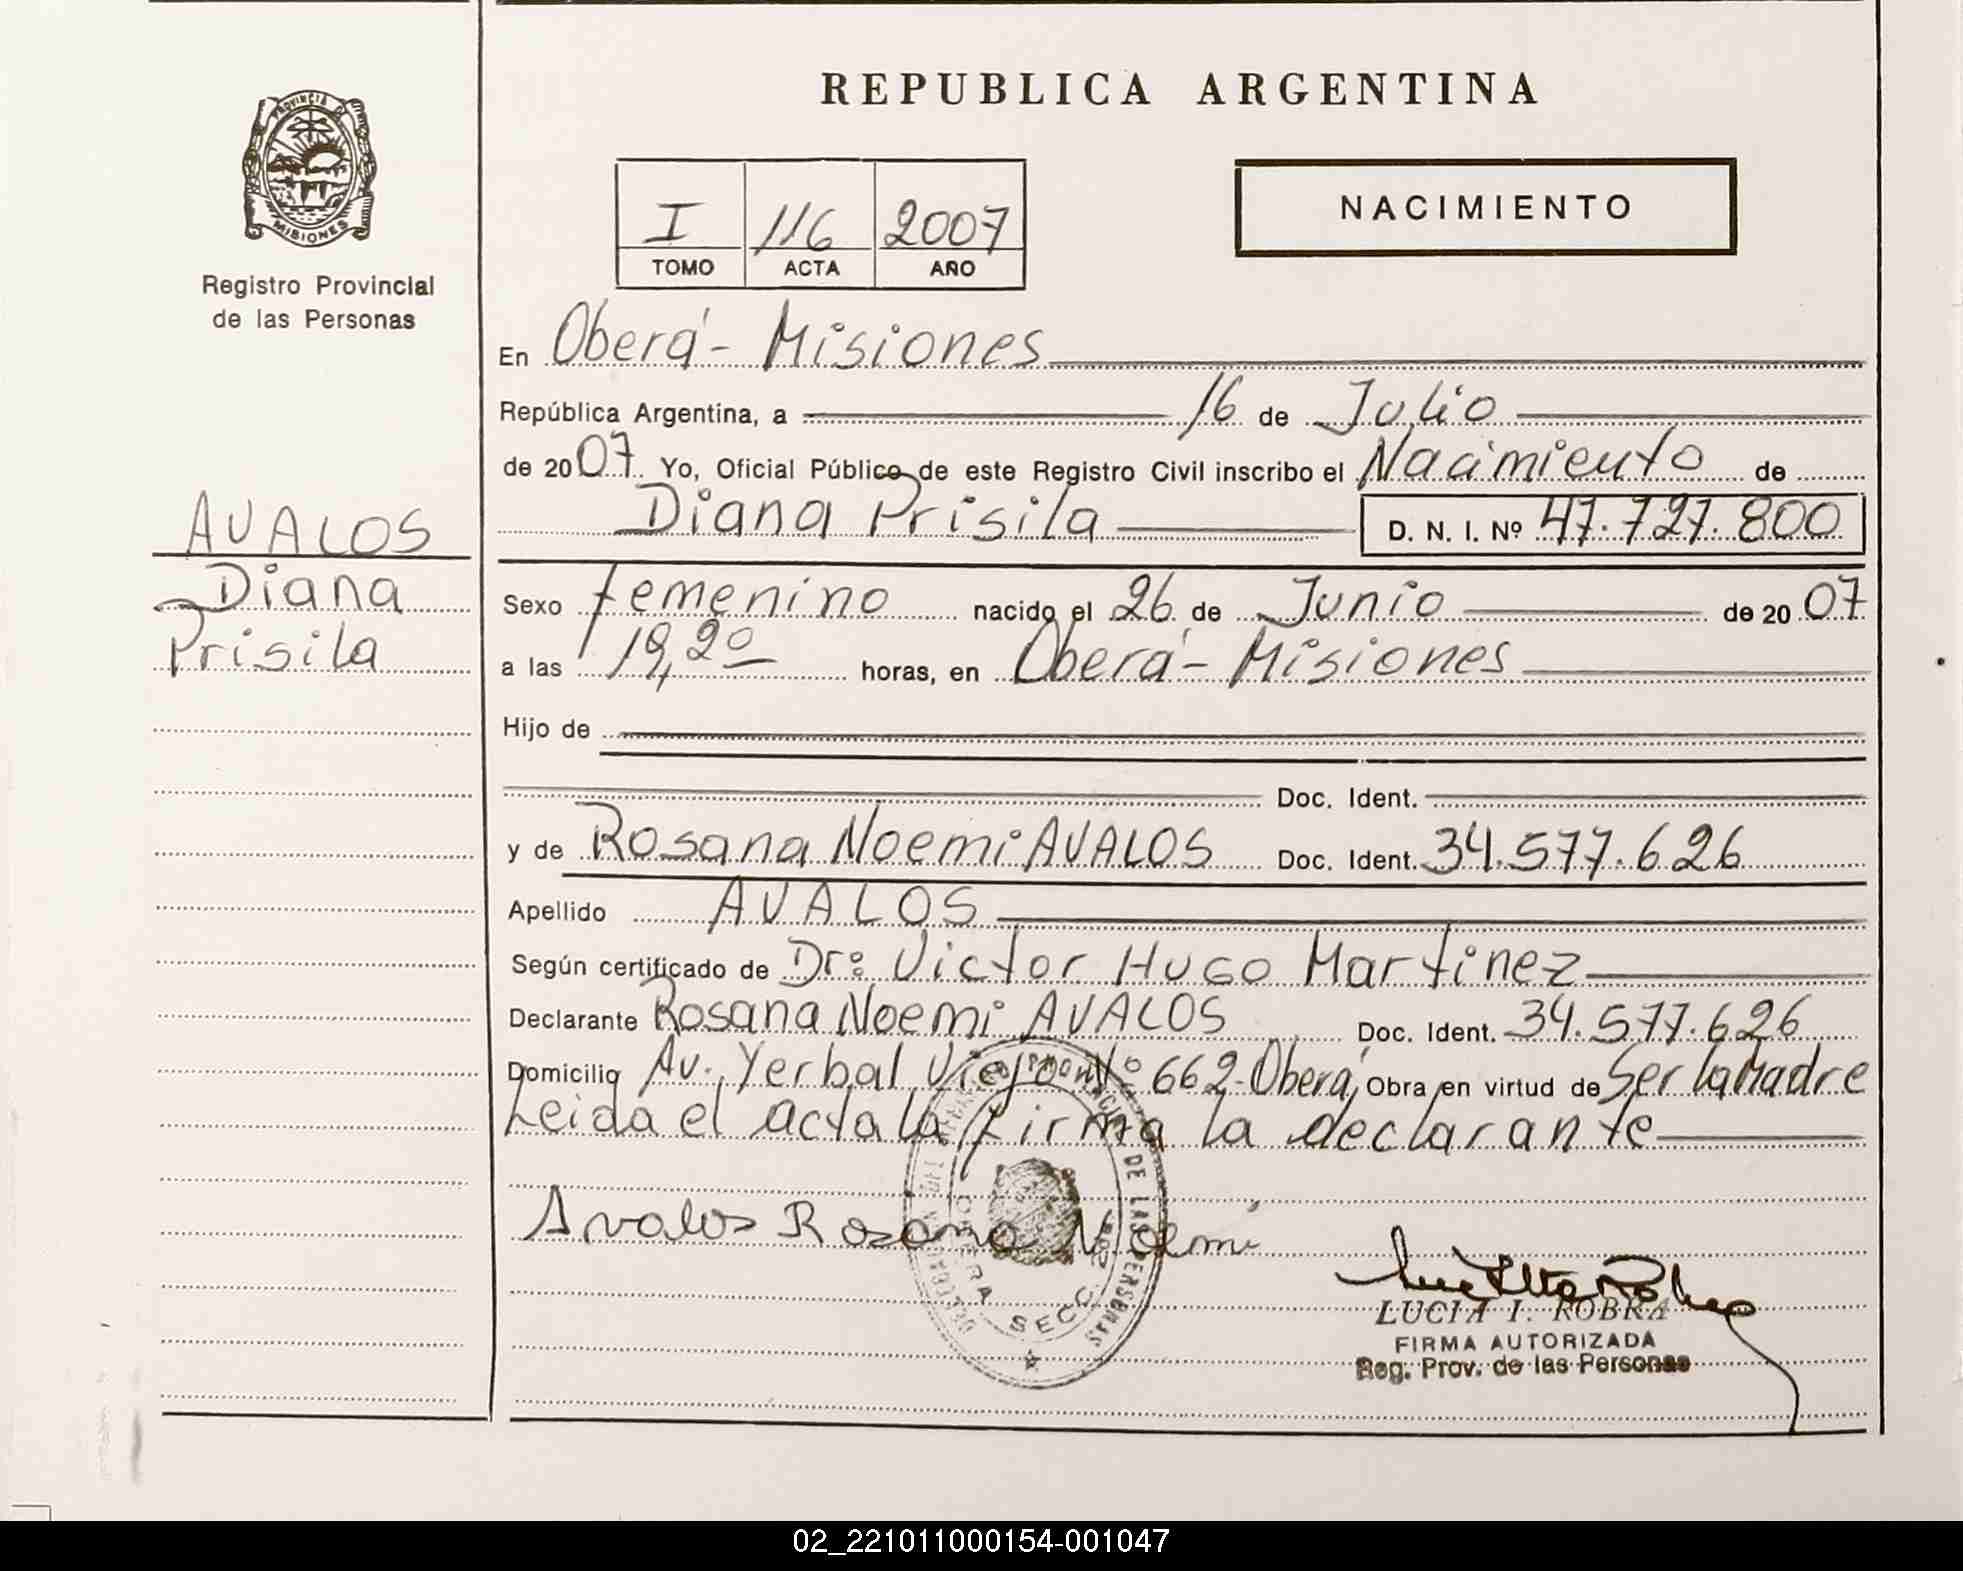 REPUBLICA ARGENTINA
PROVINCIA D
MISIONES
Registro Provincial
de las Personas
I 116 2007
TOMO ACTA AÑO
NACIMIENTO
En Oberá - Misiones
República Argentina, a 16 de Julio
de 2007 Yo, Oficial Público de este Registro Civil inscribo el Nacimiento de
Diana Prisila D. N. I. Nº 47.727.800
AVALOS
Diana
Prisila
Sexo femenino nacido el 26 de Junio de 2007
a las 19,20 horas, en Oberá - Misiones
Hijo de
Doc. Ident.
y de Rosana Noemi AVALOS Doc. Ident. 34.577.626
Apellido AVALOS
Según certificado de Dr: Victor Hugo Martinez
Declarante Rosana Noemi AVALOS Doc. Ident. 34.577.626
Domicilio Av. Yerbal Viejo Nº 662-Oberá, Obra en virtud de Ser la Madre
Leida el acta la firma la declarante
Avalos Rosana Noemí
DE LAS PERSONAS
SECC.
LUCIA I. ROBRA
FIRMA AUTORIZADA
Reg. Prov. de las Personas
02_221011000154-001047